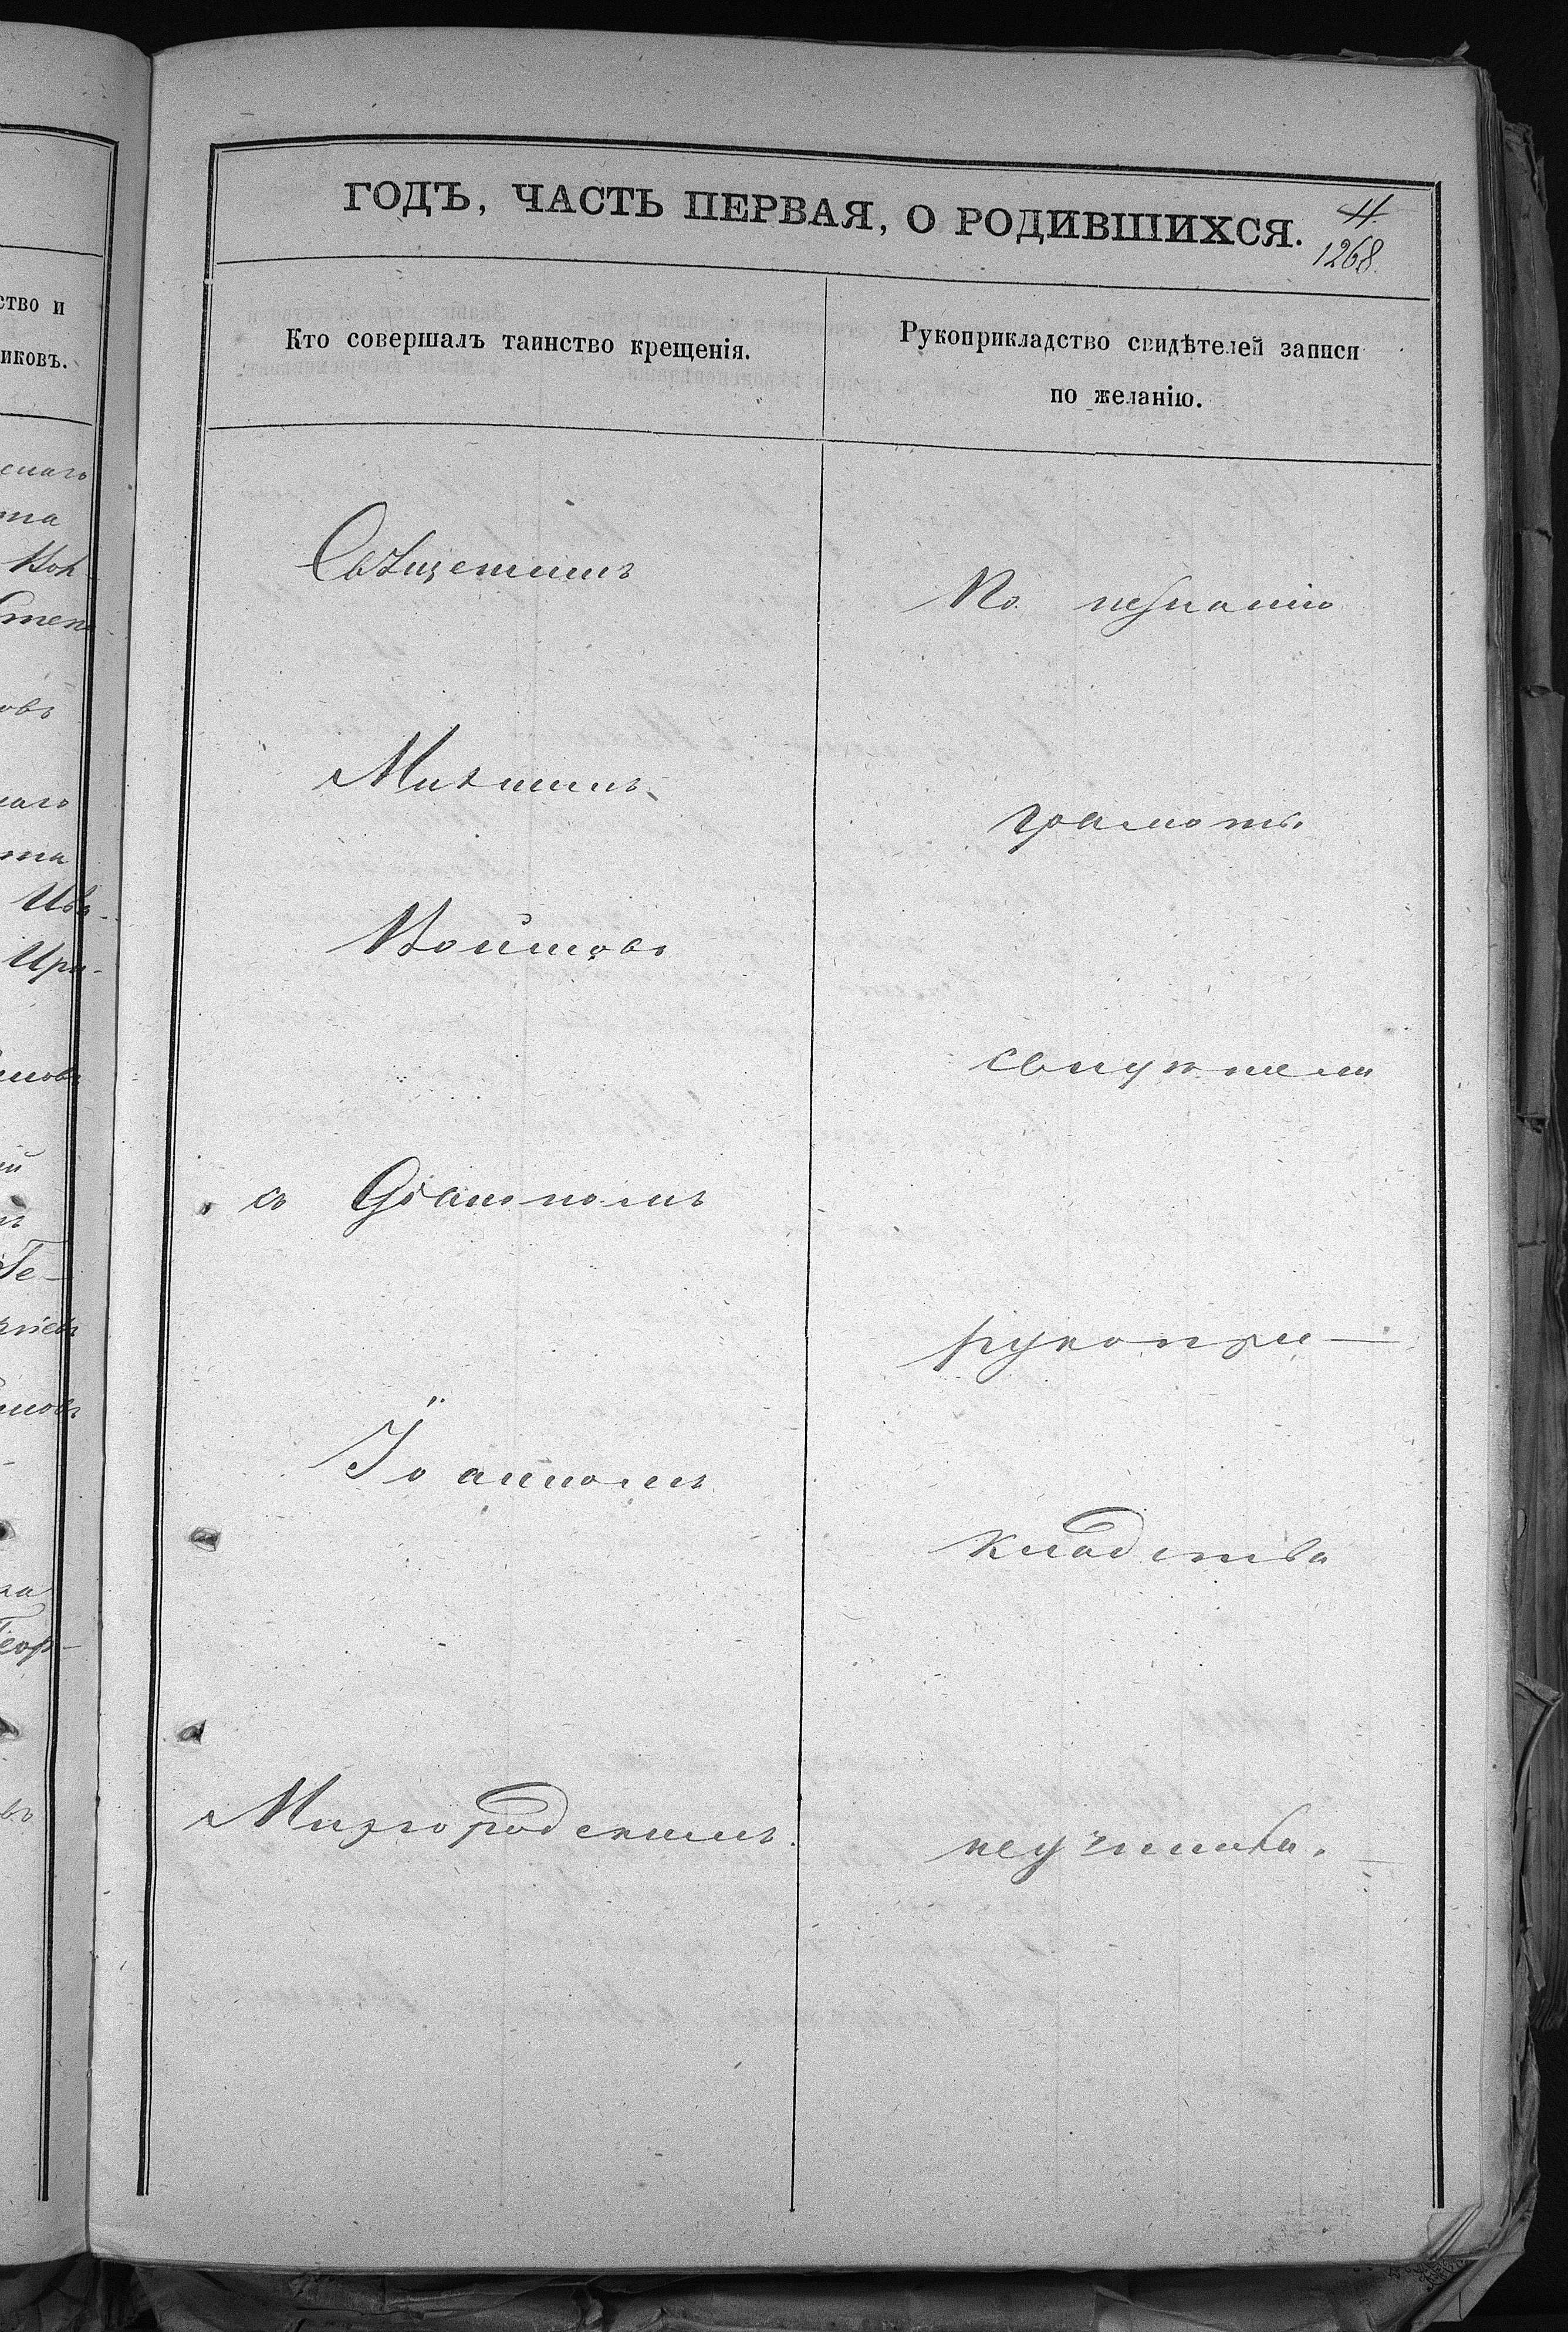 ГОДЪ, ЧАСТЬ ПЕРВАЯ, О РОДИВШИХСЯ.
4.
1268.
ство и
иковъ.
Кто совершалъ таинство крещенія.
Рукоприкладство свидѣтелей записи
по желанію.
Священникъ
Михаилъ
Войцовъ
съ Діакономъ
Іоанномъ
Мизгородскимъ.
По незнанію
грамоты
свидѣтели
рукопри-
кладства
неучинили.
та
Степ
овъ
наго
та
Ири-
Ге-
Геор-